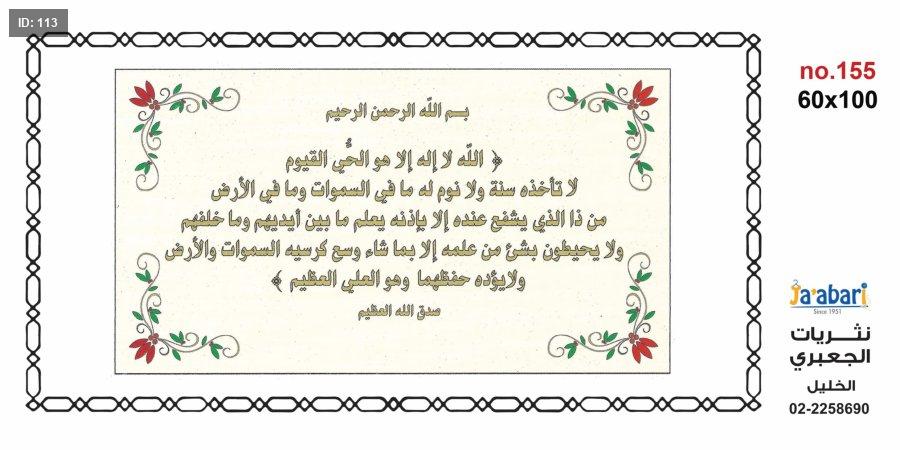 ID: 113
no.155
60x100
بسم الله الرحمن الرحيم
﴿ الله لا إله إلا هو الحيُّ القيوم
لا تأخذه سنة ولا نوم له ما في السموات وما في الأرض
من ذا الذي يشفع عنده إلا بإذنه يعلم ما بين أيديهم وما خلفهم
ولا يحيطون بشئ من علمه إلا بما شاء وسع كرسيه السموات والأرض
ولايؤده حفظهما وهو العلي العظيم ﴾
صدق الله العظيم
Ja'abari
Since 1951
نثريات
الجعبري
الخليل
02-2258690